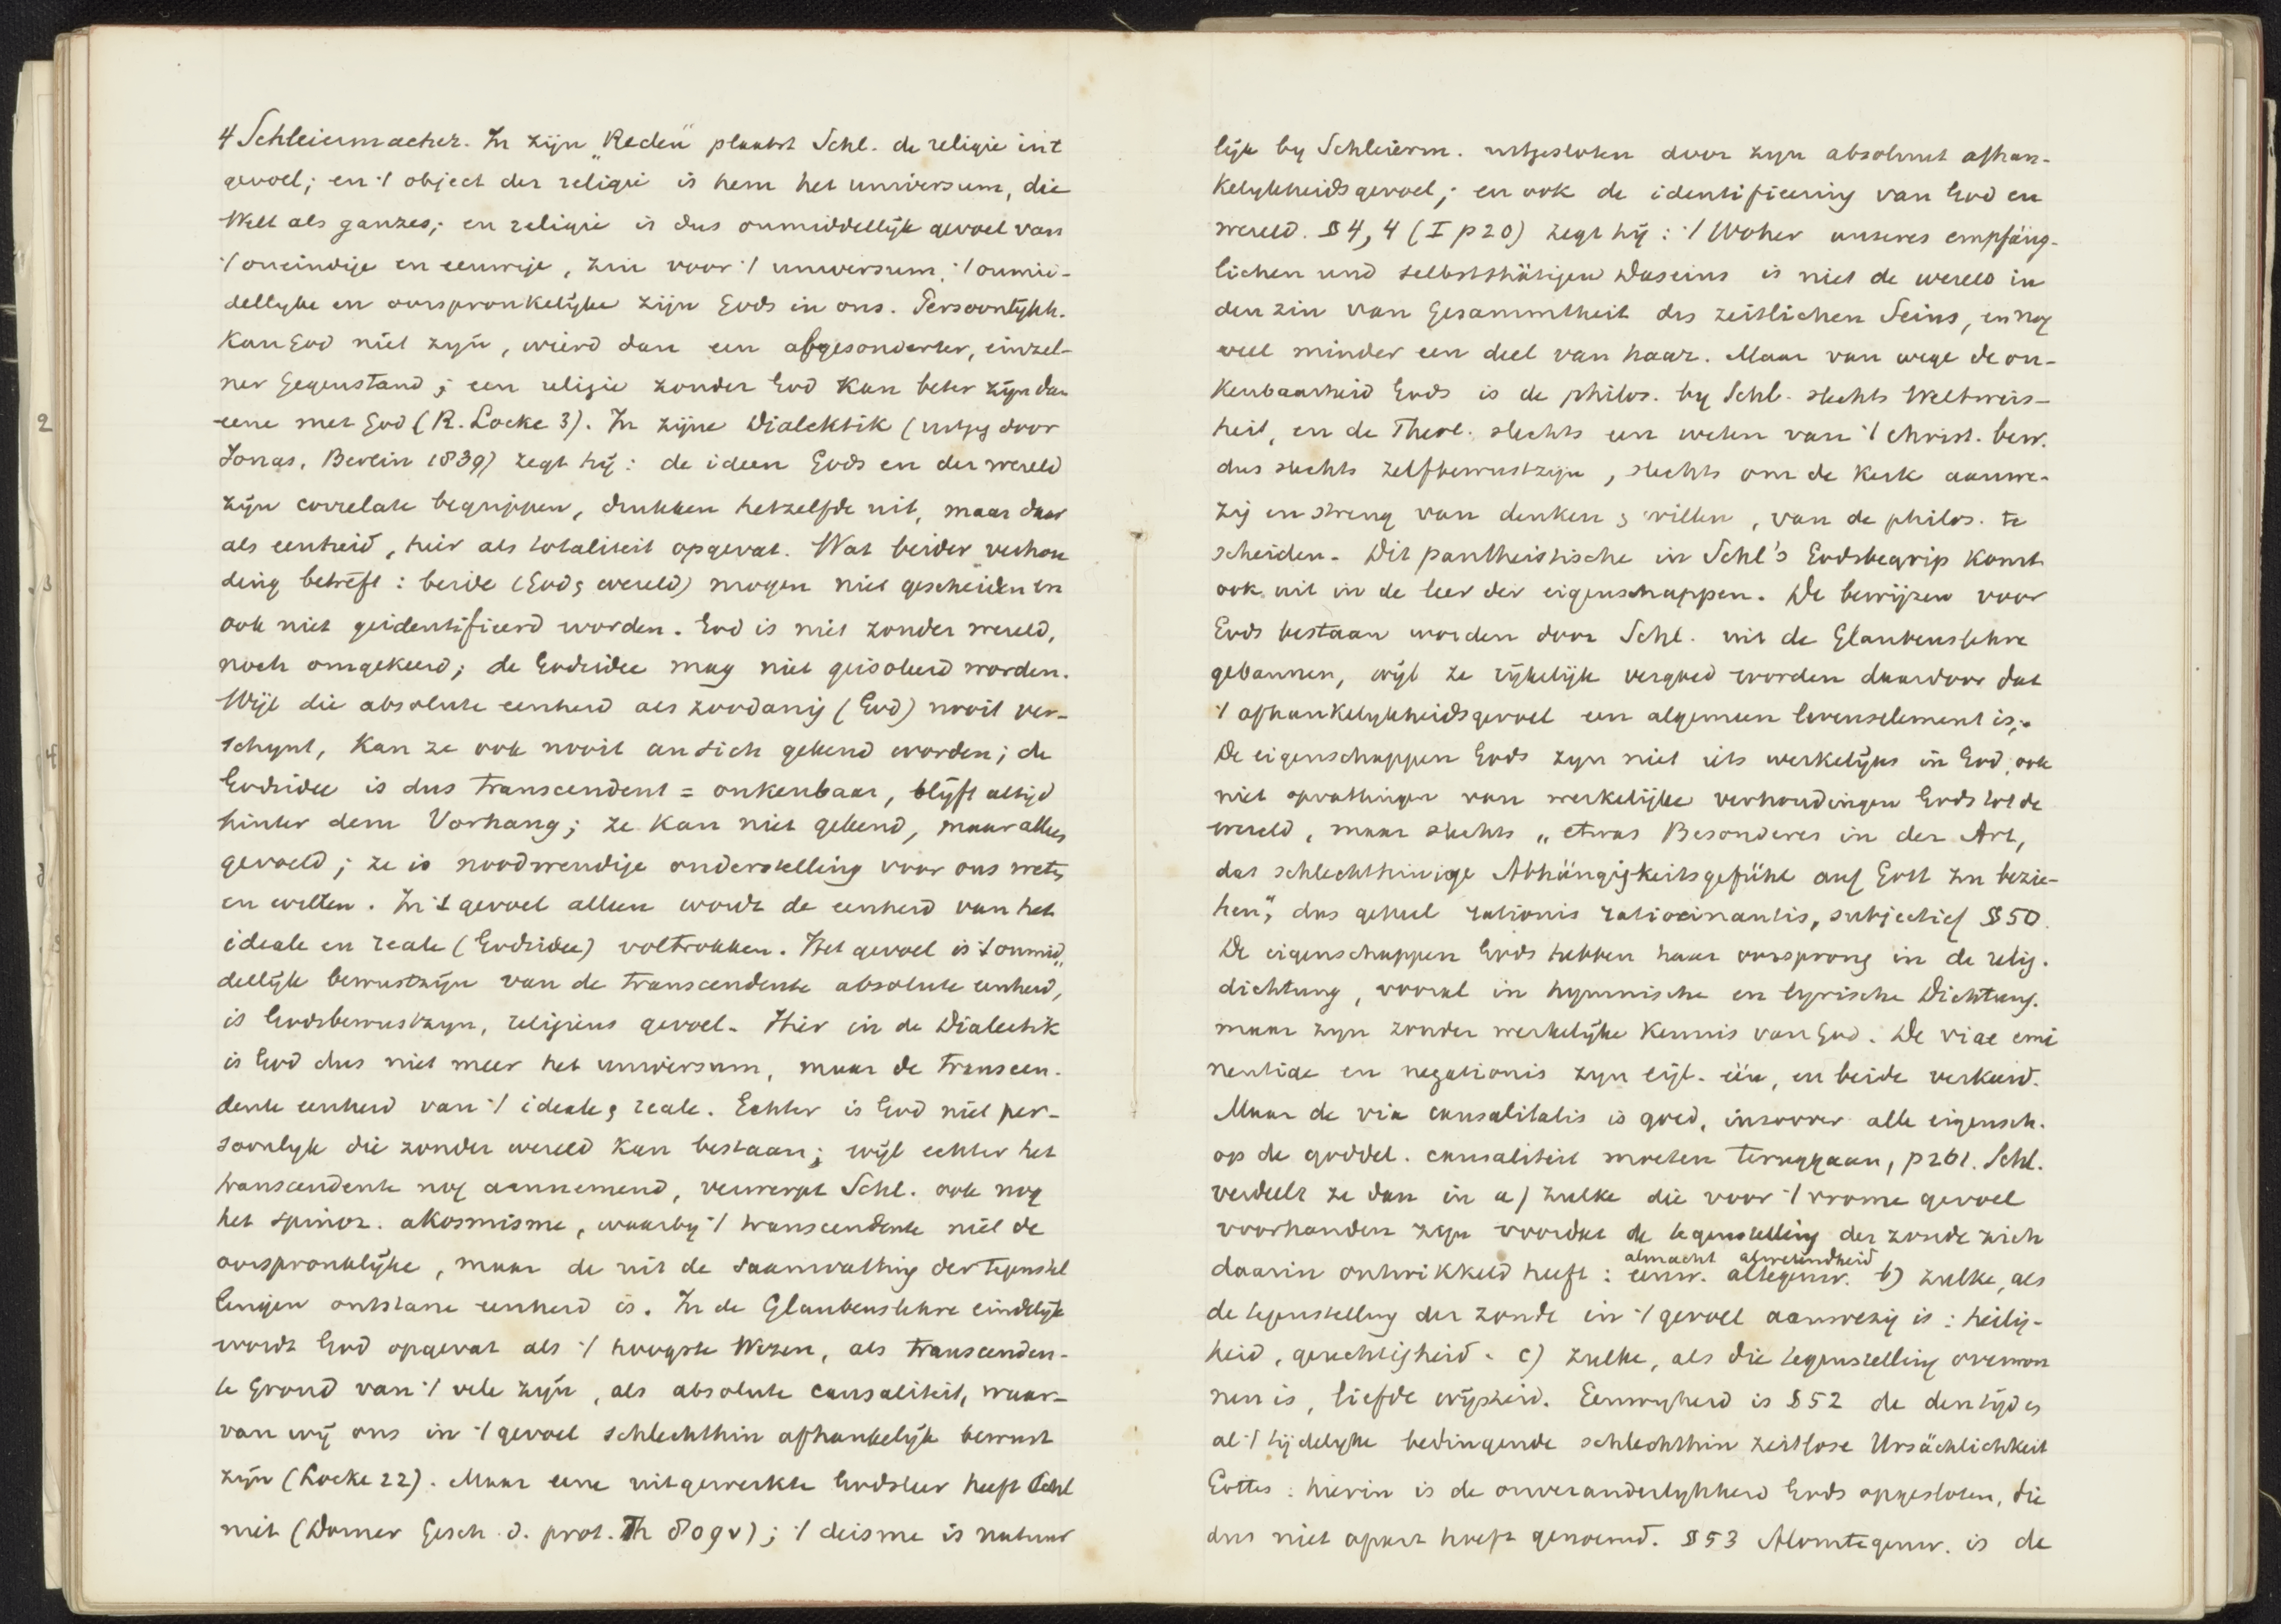 4 Schleiermacher. In zijn „Reden" plaatst Schl. de religie in 't
gevoel; en 't object der religie is hem het universum, die
Welt als ganzes; en religie is dus onmiddellijk gevoel van
't oneindige en eeuwige, zin voor 't universum, 't onmid-
dellyke en oorspronkelijke zijn Gods in ons. Persoonlykh.
kan God niet zyn, wierd dan een abgesonderter, einzel-
ner Gegenstand; een religie zonder God kan beter zyn dan
eene met God (R. Locke 3). In zijne Dialektik (uitgg door
Jonas, Berlin 1839) zegt hij: de ideen Gods en der wereld
zijn correlate begrippen, drukken hetzelfde uit, maar daar
als eenheid, hier als totaliteit opgevat. Wat beider verhou
ding betreft: beide (God & wereld) mogen niet gescheiden en
ook niet geidentificeerd worden. God is niet zonder wereld,
noch omgekeerd; de Godsidee mag niet geisoleerd worden.
Wijl die absolute eenheid als zoodanig (God) nooit ver-
schynt, kan ze ook nooit an sich gekend worden; de
Godsidee is dus transcendent = onkenbaar, blijft altijd
hinter dem Vorhang; ze kan niet gekend, maar alleen
gevoeld; ze is noodwendige onderstelling voor ons weten
en willen. In 't gevoel alleen wordt de eenheid van het
ideale en reale (Godsidee) voltrokken. Het gevoel is 't onmid„
dellijk bewustzijn van de transcendente absolute eenheid,
is Godsbewustzyn, religieus gevoel. Hier in de Dialectik
is God dus niet meer het universum, maar de transcen-
dente eenheid van 't ideale & reale. Echter is God niet per-
soonlyk die zonder wereld kan bestaan; wijl echter het
transcendente nog aannemend, verwerpt Schl. ook nog
het spinoz. akosmisme, waarby 't transcendente niet de
oorspronklijke, maar de uit de saamvatting der tegenstel
lingen ontstane eenheid is. In de Glaubenslehre eindelijk
wordt God opgevat als 't hoogste Wezen, als transcenden-
te Grond van 't vele zijn, als absolute causaliteit, waar-
van wij ons in 't gevoel schlechthin afhankelijk bewust
zijn (Locke 22). Maar eene uitgewerkte Godsleer heeft Schl
niet (Dorner Gesch. d. prot. Th 809 v); 't deisme is natuur
lijk by Schleierm. uitgesloten door zyn absoluut afhan-
kelykheidsgevoel; en ook de identificering van God en
wereld. § 4, 4 (I p 20) zegt hij: 't Woher unseres empfäng-
lichen und selbstthätigen Daseins is niet de wereld in
den zin van Gesammtheit des zeitlichen Seins, en nog
veel minder een deel van haar. Maar van wege de on-
kenbaarheid Gods is de philos. by Schl. slechts Weltweis-
heit, en de Theol. slechts een weten van 't christ. bew.
dus slechts zelfbewustzyn, slechts om de kerk aanwe-
zig en streng van denken & willen, van de philos. te
scheiden. Dit pantheistische in Schl's Godsbegrip komt
ook uit in de leer der eigenschappen. De bewijzen voor
Gods bestaan worden door Schl. uit de Glaubenslehre
gebannen, wijl ze rijkelijk vergoed worden daardoor dat
't afhankelykheidsgevoel een algemeen levenselement is;.
De eigenschappen Gods zyn niet iets werkelijks in God, ook
niet opvattingen van werkelijke verhoudingen Gods tot de
wereld, maar slechts „etwas Besonderes in der Art,
das schlechthinnige Abhängigkeitsgefühl auf Gott zu bezie-
hen", dus geheel rationis ratiocinantis, subjectief § 50.
De eigenschappen Gods hebben haar oorsprong in de relig.
dichtung, vooral in hymnische en lyrische Dichtung.
maar zyn zonder werkelijke kennis van God. De viae emi
nentiae en negationis zyn eigl. één, en beide verkeerd.
Maar de via causalitatis is goed, inzoover alle eigensch.
op de goddel. causaliteit moeten teruggaan, p 261. Schl.
verdeelt ze dan in a) zulke die voor 't vrome gevoel
voorhanden zyn voordat de tegenstelling der zonde zich
daarin ontwikkeld heeft: eeuw. alltegenw. b) zulke, als
almacht alwetendheid
de tegenstelling der zonde in 't gevoel aanwezig is: heilig-
heid, gerechtigheid. c) zulke, als die tegenstelling overwon
nen is, liefde wijsheid. Eeuwigheid is § 52 de den tijd &
al 't tijdelyke bedingende schlechthin zeitlose Ursächlichkeit
Gottes: hierin is de onveranderlykheid Gods opgesloten, die
dus niet apart hoeft genoemd. § 53 Alomtegenw. is de